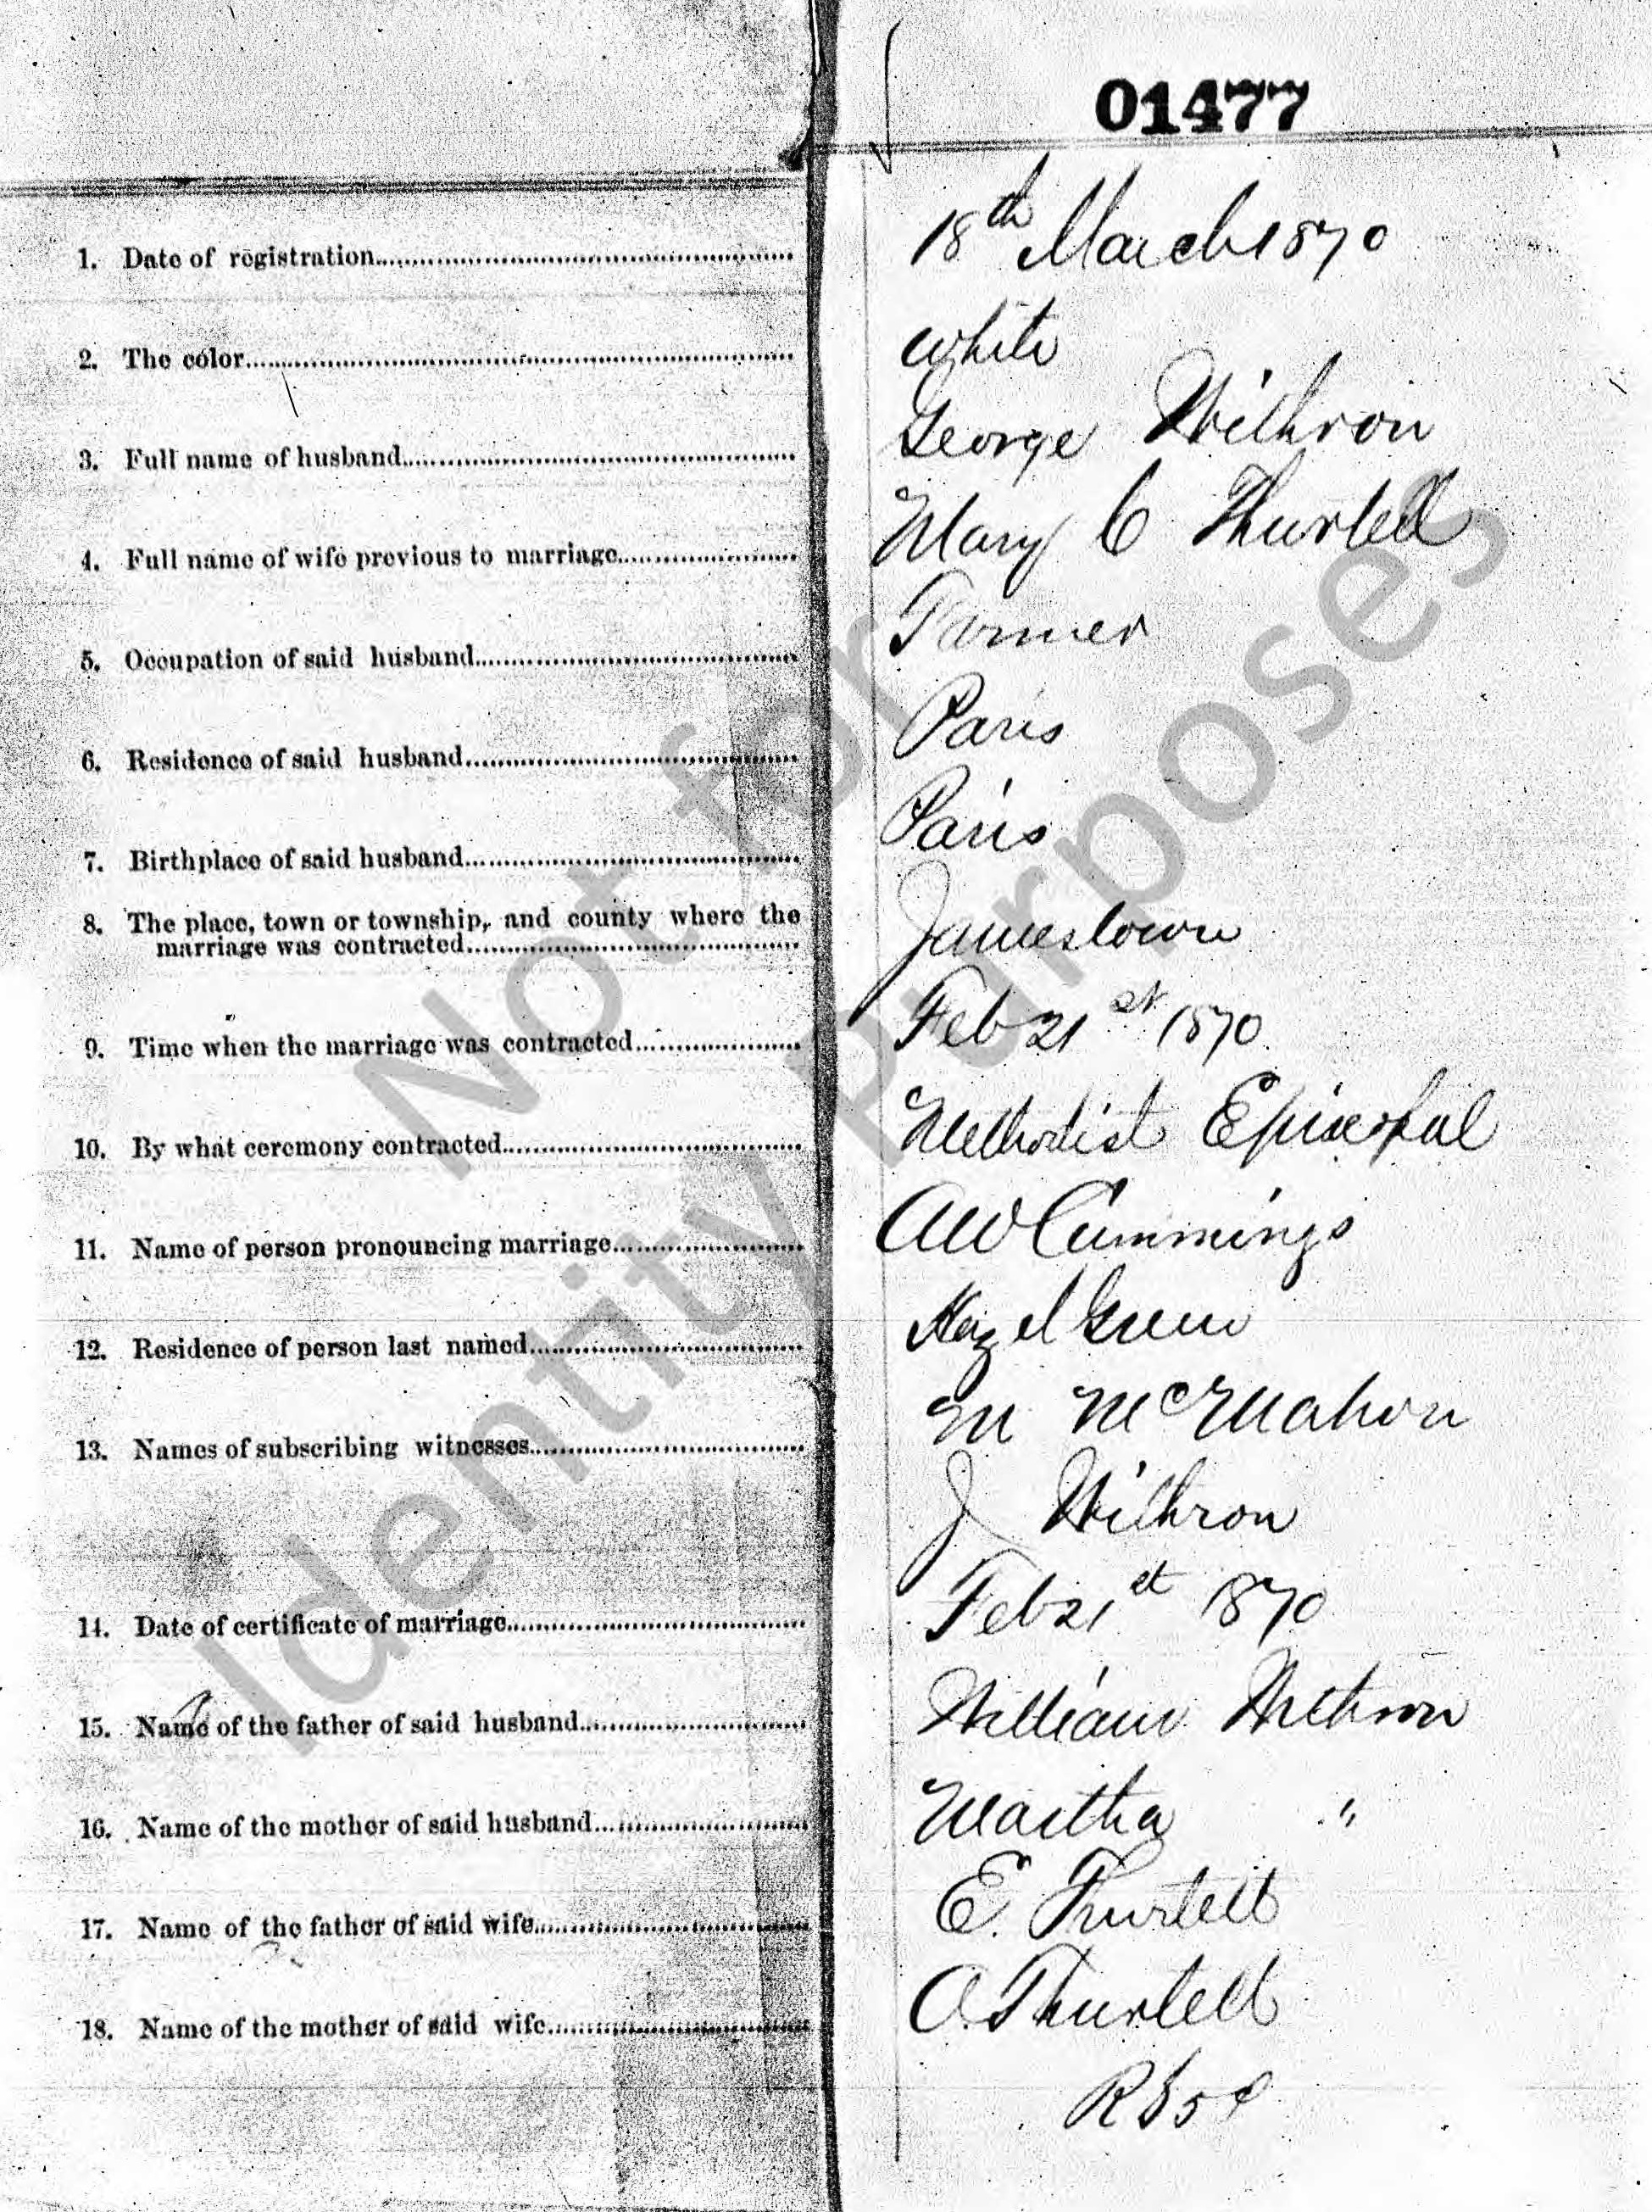 01477
1. Date of registration 18th March 1870
2. The color white
3. Full name of husband George Withrow
4. Full name of wife previous to marriage Mary C Thurtell
5. Occupation of said husband Farmer
6. Residence of said husband Paris
7. Birthplace of said husband Paris
8. The place, town or township, and county where the
marriage was contracted Jamestown
9. Time when the marriage was contracted Feb 21st 1870
10. By what ceremony contracted Methodist Episcopal
11. Name of person pronouncing marriage AW Cummings
12. Residence of person last named Hazel Green
13. Names of subscribing witnesses M McMahon
J Withrow
14. Date of certificate of marriage Feb 21st 1870
15. Name of the father of said husband William Withrow
16. Name of the mother of said husband Martha "
17. Name of the father of said wife E. Thurtell
18. Name of the mother of said wife C. Thurtell
Not for
Identity Purposes